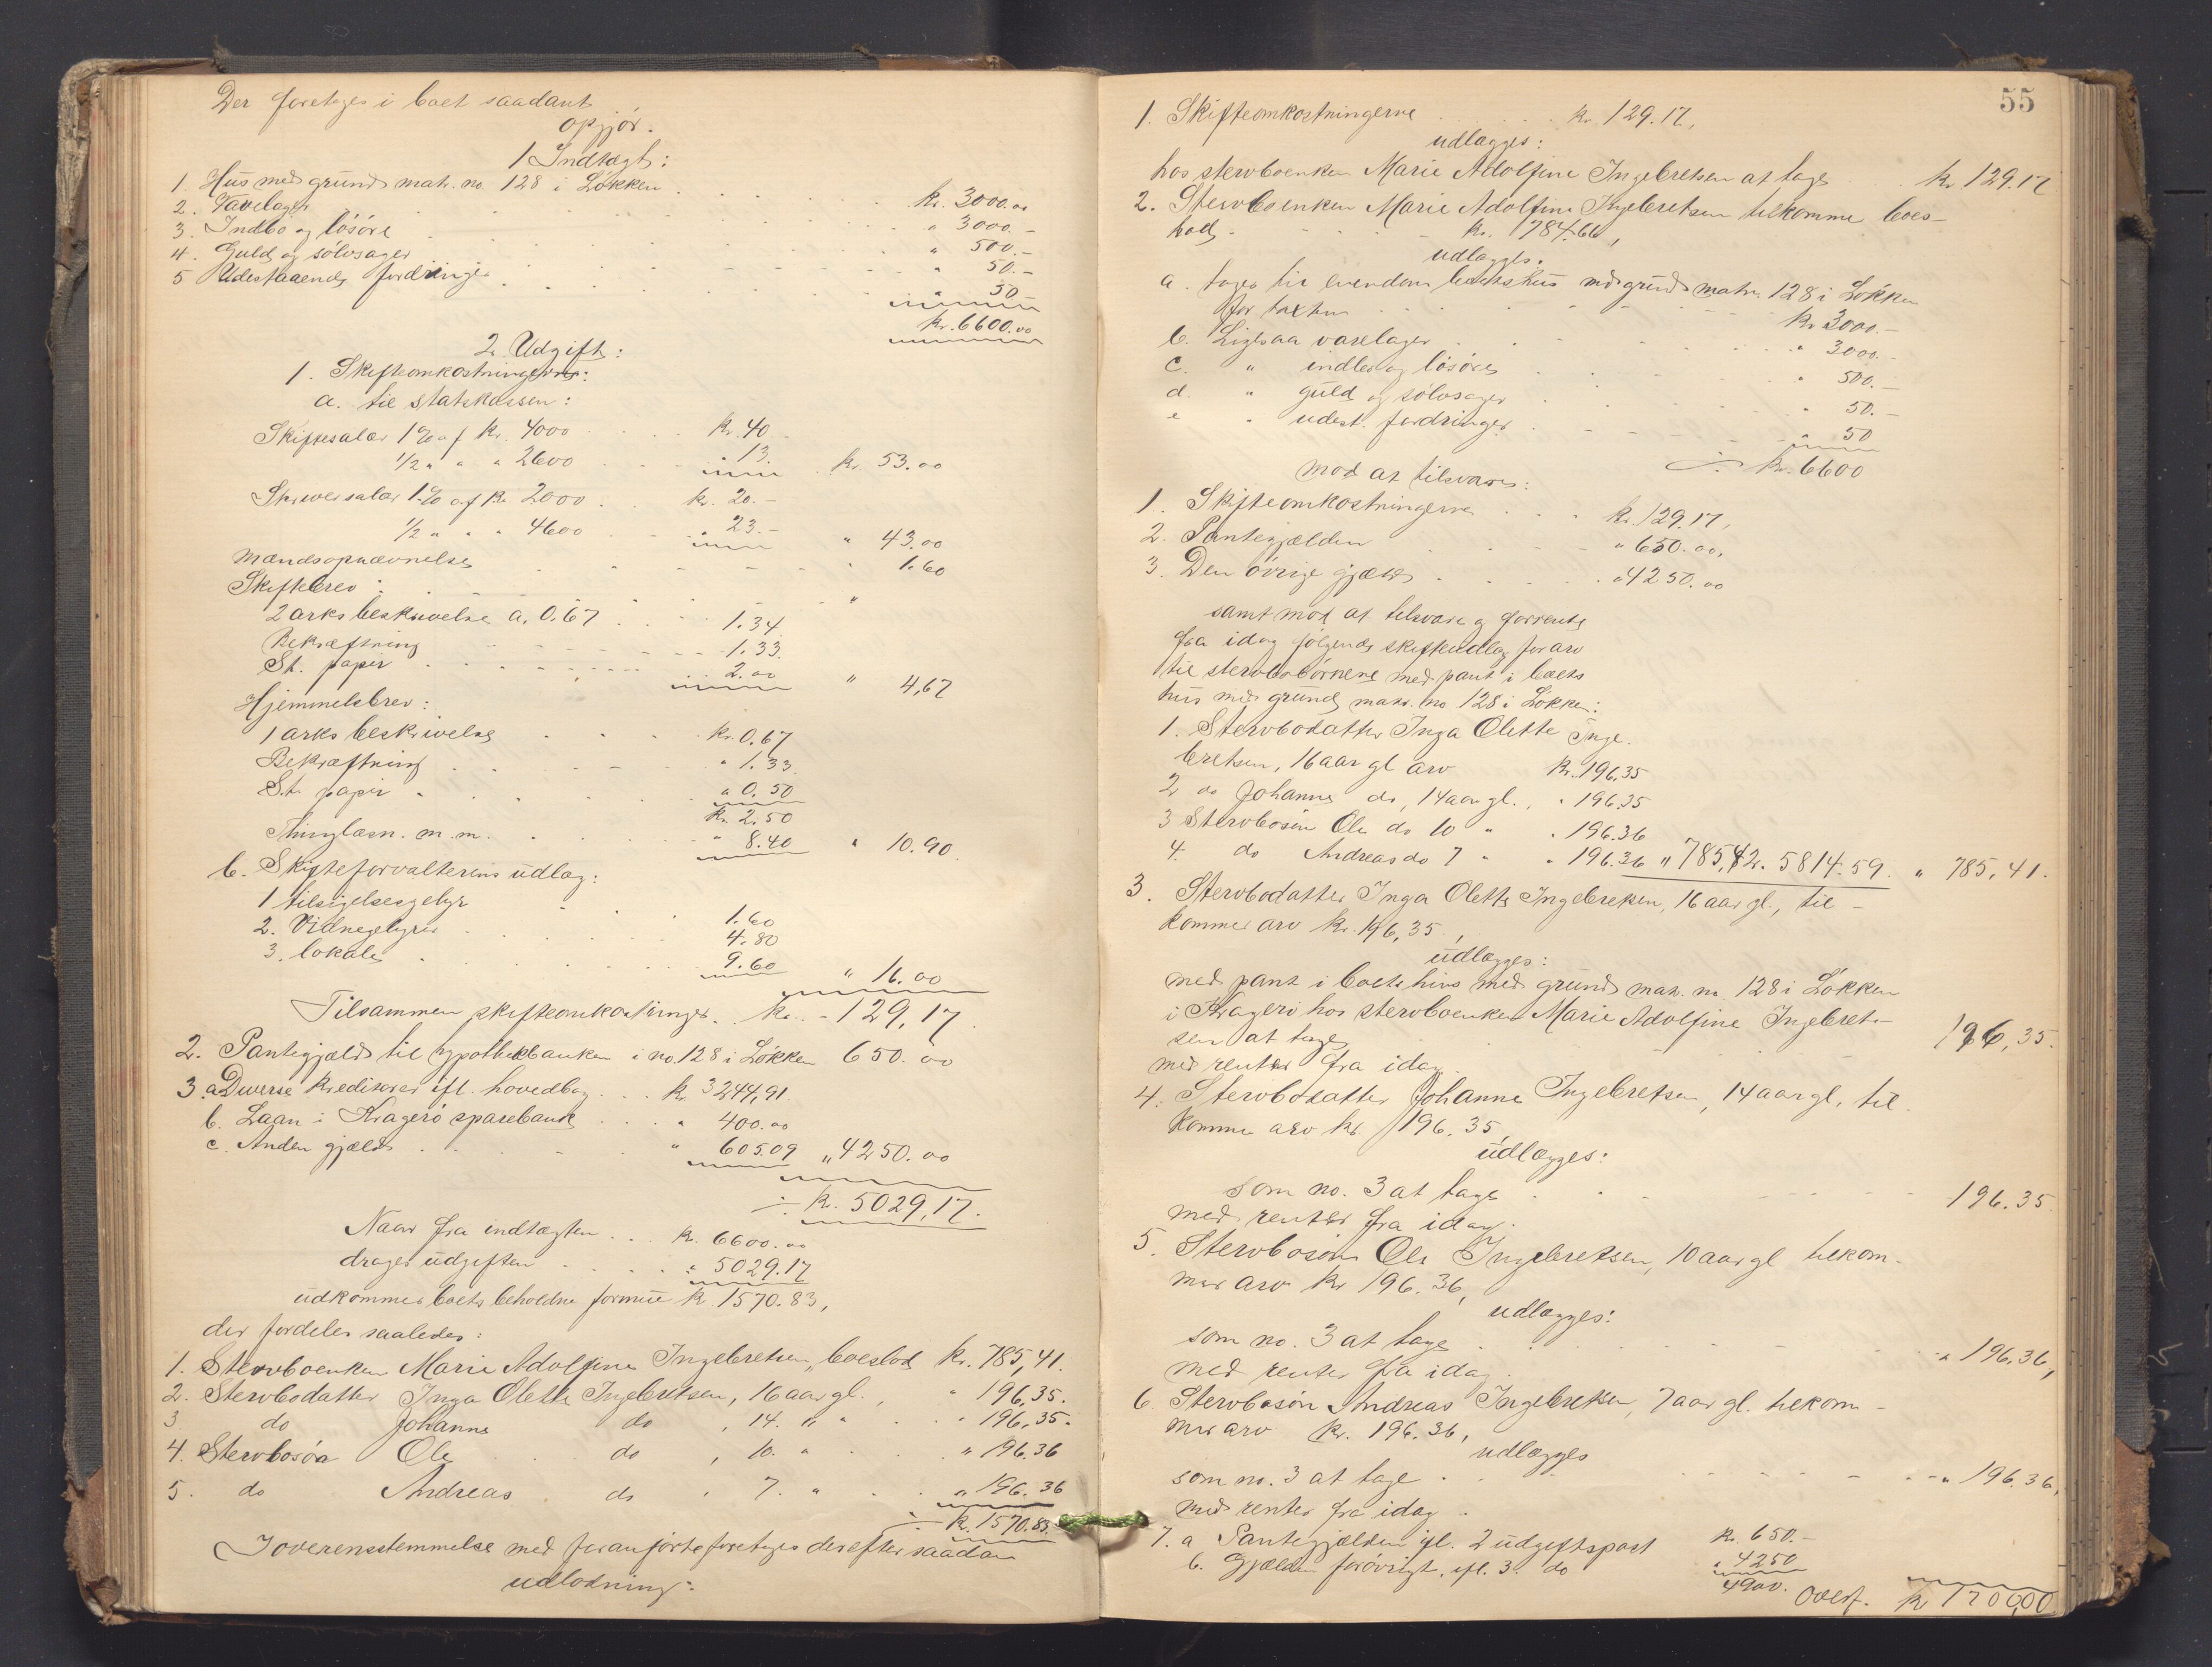 Der foretages i boet saadant
opgjør.
1 Indtægt:
1. Hus med grund matr. no. 128 i Løkken . kr. 3000.00
2. Varelager . " 3000.-
3. Indbo og løsøre " 500.-
4. Guld og sølvsager " 50.-
5 Udestaaende fordringer " 50-
kr. 6600.00
2. Udgift:
1. Skifteomkostningerne:
a. til statskassen:
Skiftesalær 1% af kr. 4000 kr. 40.
1/2 " " " 2600 " 13. kr. 53.00
Skriversalær 1% af kr. 2000 kr. 20.-
1/2 " " " 4600 " 23.- " 43.00
Mændsopnævnelse " 1.60
Skiftebrev: "
2 arks beskrivelse a. 0.67 1.34
Bekræftning 1.33.
St. papir 2.00 " 4,67
Hjemmelsbrev:
1 arks beskrivelse kr. 0.67
Bekræftning " 1.33.
St. papir " 0.50
kr. 2.50
Thinglæsn. m.m. " 8.40 " 10.90.
b. Skifteforvalterens udlæg:
1 tilsigelsesgebyr 1.60
2. Vidnegebyrer 4.80
3. lokale 9.60 " 16.00
Tilsammen skifteomkostninger. kr. - 129,17.
2. Pantegjæld til hypothekbanken i no. 128 i Løkken 650.00
3. a Diverse kreditorer ifl. hovedbog kr. 3244,91.
b. Laan i Kragerø sparebank " 400.00
c. Anden gjæld " 605.09 " 4250.00
÷ kr. 5029,17.
Naar fra indtægten kr. 6600.00
drages udgiften " 5029.17
udkommer boets beholdne formue kr 1570.83,
der fordeles saaledes:
1. Stervboenken Marie Adolfine Ingebretsen, boeslod kr. 785,41.
2. Stervbodatter Inga Olette Ingebretsen, 16 aar gl. , " 196,35.
3 do Johanne do , 14. " " " 196,35.
4. Stervbosøn Ole do , 10. " " 196.36
5. do Andreas do , 7. " " 196.36
÷ kr. 1570.83.
I overensstemmelse med foranførte foretages derefter saadan
udlodning:
55
1. Skifteomkostningerne kr. 129.17,
udlægges:
hos stervboenken Marie Adolfine Ingebretsen at tage kr. 129.17
2. Stervboenken Marie Adolfine Ingebretsen tilkommer boes-
lod kr. 784.66,
udlægges.
a. tages til eiendom boets hus med grund matr. 128 i Løkken
for taxten kr 3000.-
b. Ligesaa varelager " 3000.-
c. " indbo og løsøre " 500.-
d. " guld og sølvsager " 50.-
e " udest. fordringer " 50
÷ kr. 6600
mod at tilsvare:
1. Skifteomkostningerne kr. 129.17,
2. Pantegjælden " 650.00,
3. Den øvrige gjæld " 4250.00
samt mod at tilsvare og forrente
fra idag følgende skifteudlæg for arv
til stervbobørnene med pant i boets
hus med grund matr. no. 128 i Løkken:
1. Stervbodatter Inga Olette Inge-
bretsen, 16 aar gl arv kr. 196,35
2 do Johanne do, 14 aar gl., " 196.35
3 Stervbosøn Ole do 10 " " 196.36
4. do Andreas do 7 " " 196.36 " 785,42. 5814.59. " 785,41.
3. Stervbodatter Inga Olette Ingebretsen, 16 aar gl., til-
kommer arv kr. 196,35,
udlægges:
med pant i boets hus med grund matr. no. 128 i Løkken
i Kragerø hos stervboenken Marie Adolfine Ingebret-
sen at tage 196,35.
med renter fra idag.
4. Stervbodatter Johanne Ingebretsen, 14 aar gl. til-
kommer arv kr 196.35,
udlægges:
som no. 3 at tage 196.35.
med renter fra idag.
5. Stervbosøn Ole Ingebretsen, 10 aar gl tilkom-
mer arv kr 196.36,
udlægges:
som no. 3 at tage " 196,36,
med renter fra idag.
6. Stervbosøn Andreas Ingebretsen, 7 aar gl. tilkom-
mer arv kr. 196.36,
udlægges
som no. 3 at tage " 196.36,
med renter fra idag.
7. a Pantegjælden ifl. 2 udgiftspost kr. 650.-
b. Gjælden forøvrigt, ifl. 3. do " 4250
4900. Overf. kr 1700,00